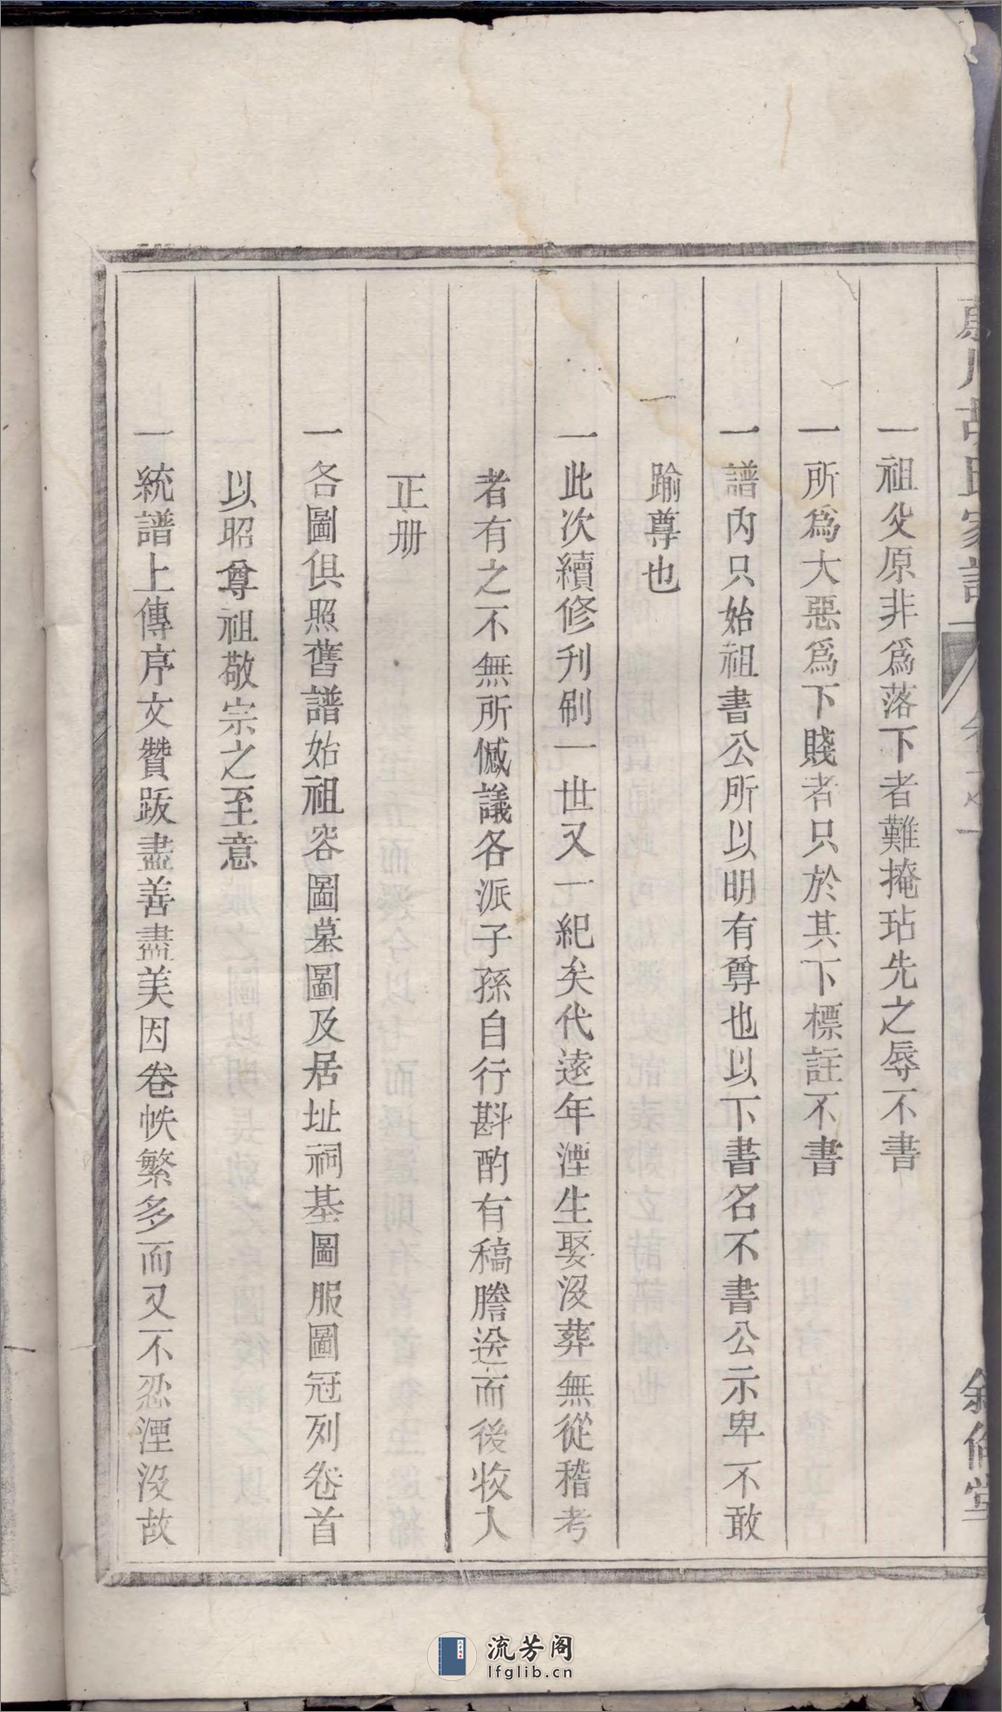 川胡氏家譜
卷之一
敘倫堂
一祖父原非為落下者難掩玷先之辱不書
一所為大惡為下賤者只於其下標註不書
一譜内只始祖書公所以明有尊也以下書名不書公示卑不敢
踰尊也
一此次續修刋刷一世又一紀矣代逺年湮生娶沒葬無從稽考
者有之不無所憾議各派子孫自行斟酌有稿謄送而後收入
正册
一各圖俱照舊譜始祖容圖墓圖及居址祠基圖服圖冠列卷首
以昭尊祖敬宗之至意
一統譜上傳序文贊跋盡善盡美因卷帙繁多而又不忍湮沒故
流芳阁
lfglib.cn